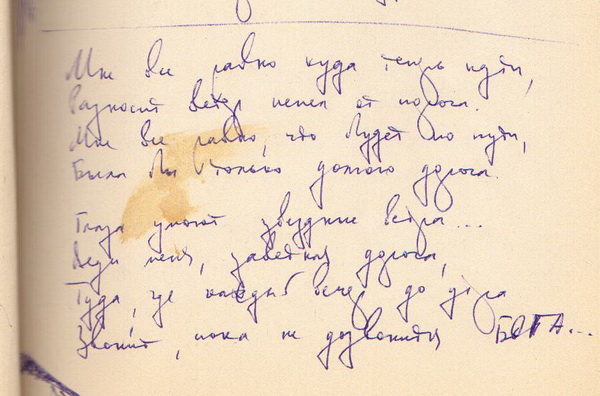 Мне все равно куда теперь идти,
Разносит ветер пепел от порога.
Мне все равно, что будет по пути,
Была бы только долгою дорога.
Глаза умоют звездные ветра...
Веди меня, заветная дорога,
Туда, где каждый вечер до утра
Звонит, пока не дозвонится БОГА...